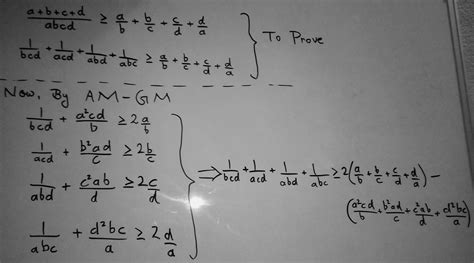 (a+b+c+d)/(abcd) ≥ a/b + b/c + c/d + d/a
1/(bcd) + 1/(acd) + 1/(abd) + 1/(abc) ≥ a/b + b/c + c/d + d/a } To Prove
Now, By AM-GM
1/(bcd) + a²cd/b ≥ 2a/b
1/(acd) + b²ad/c ≥ 2b/c
1/(abd) + c²ab/d ≥ 2c/d
1/(abc) + d²bc/a ≥ 2d/a
⇒ 1/(bcd) + 1/(acd) + 1/(abd) + 1/(abc) ≥ 2(a/b + b/c + c/d + d/a) −
(a²cd/b + b²ad/c + c²ab/d + d²bc/a)